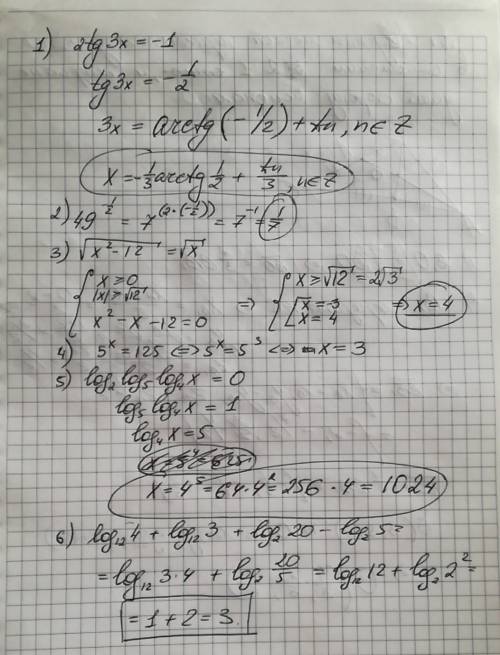 1) 2tg3x = -1
tg3x = -1/2
3x = arctg(-1/2) + πn, n∈Z
x = -1/3 arctg 1/2 + πn/3, n∈Z
2) 49^(-1/2) = 7^(2·(-1/2)) = 7^-1 = 1/7
3) √(x²-12) = √x
{ x ≥ 0
|x| ≥ √12
x² - x - 12 = 0
=> { x ≥ √12 = 2√3
[ x = -3
x = 4
=> x = 4
4) 5^x = 125 <=> 5^x = 5^3 <=> x = 3
5) log₂ log₅ log₄ x = 0
log₅ log₄ x = 1
log₄ x = 5
x = 4^5 = 64·4² = 256·4 = 1024
6) log₁₂ 4 + log₁₂ 3 + log₂ 20 - log₂ 5 =
= log₁₂ 3·4 + log₂ 20/5 = log₁₂ 12 + log₂ 2² =
= 1 + 2 = 3.